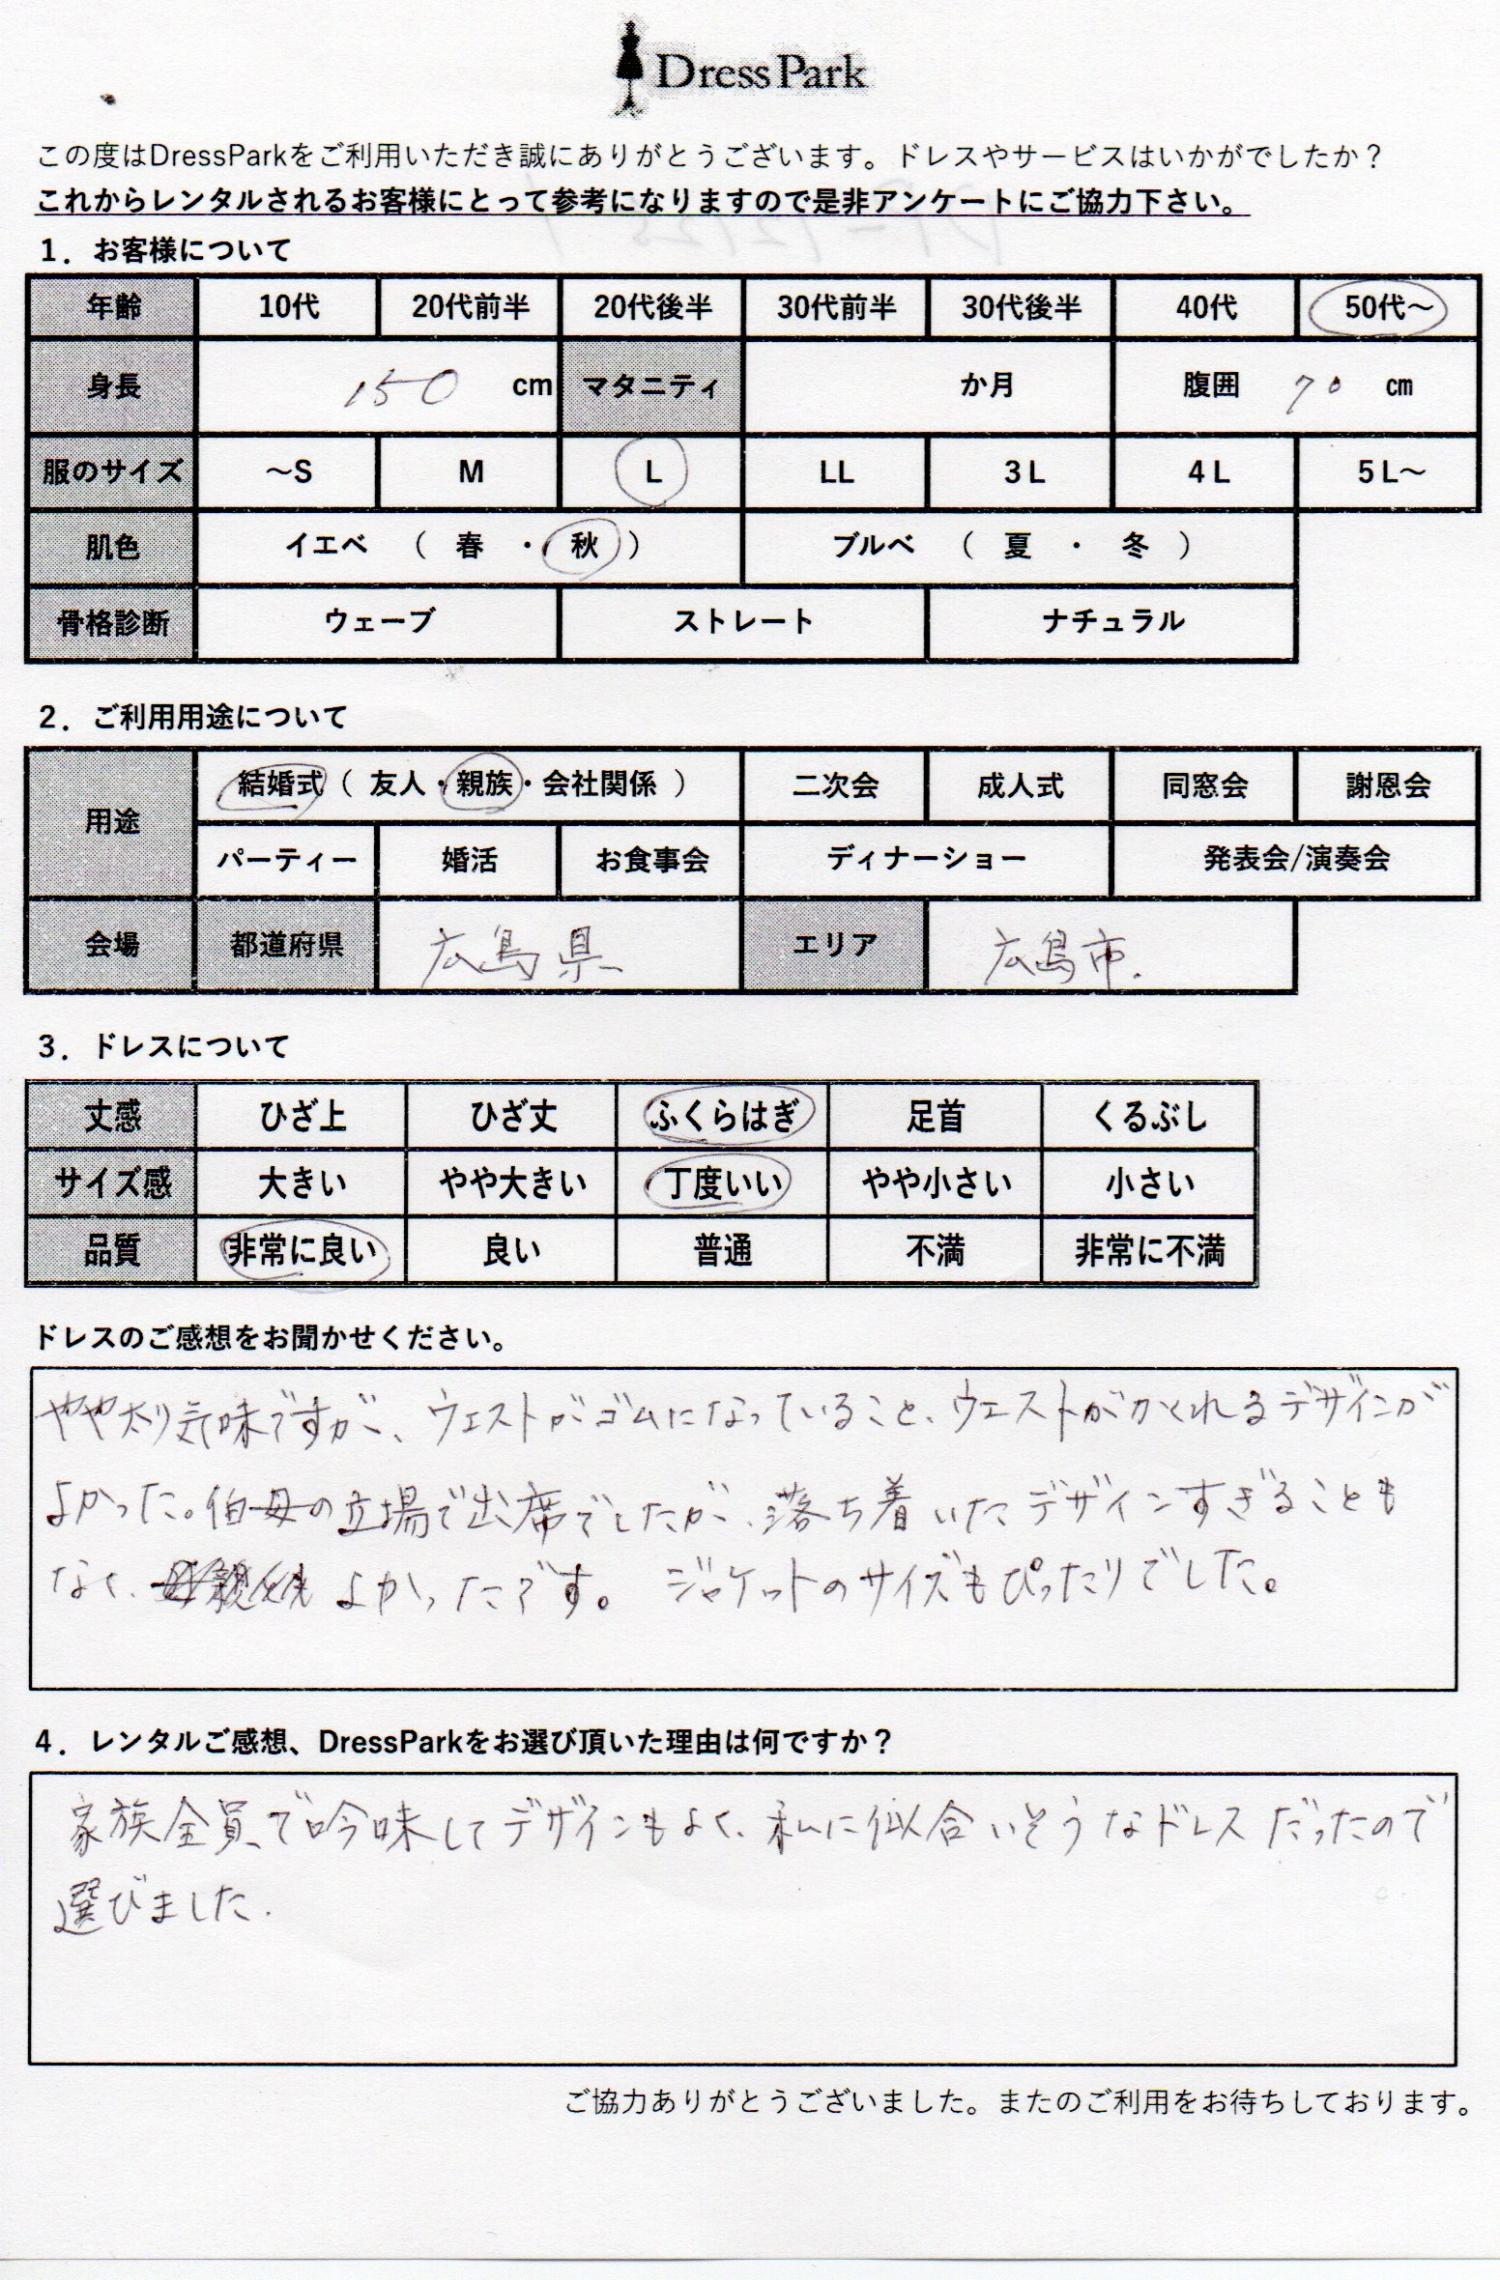 Dress Park
この度はDressParkをご利用いただき誠にありがとうございます。ドレスやサービスはいかがでしたか？
これからレンタルされるお客様にとって参考になりますので是非アンケートにご協力下さい。
1．お客様について
年齢 10代 20代前半 20代後半 30代前半 30代後半 40代 50代～
身長 150 cm マタニティ か月 腹囲 70 cm
服のサイズ ～S M L LL 3L 4L 5L～
肌色 イエベ （ 春 ・ 秋 ） ブルベ （ 夏 ・ 冬 ）
骨格診断 ウェーブ ストレート ナチュラル
2．ご利用用途について
用途 結婚式（ 友人・親族・会社関係 ） 二次会 成人式 同窓会 謝恩会
パーティー 婚活 お食事会 ディナーショー 発表会/演奏会
会場 都道府県 広島県 エリア 広島市.
3．ドレスについて
丈感 ひざ上 ひざ丈 ふくらはぎ 足首 くるぶし
サイズ感 大きい やや大きい 丁度いい やや小さい 小さい
品質 非常に良い 良い 普通 不満 非常に不満
ドレスのご感想をお聞かせください。
やや太り気味ですが、ウェストがゴムになっていること、ウエストがかくれるデザインが
よかった。伯母の立場で出席でしたが、落ち着いたデザインすぎることも
なく、よかったです。 ジャケットのサイズもぴったりでした。
4．レンタルご感想、DressParkをお選び頂いた理由は何ですか？
家族全員で吟味してデザインもよく、私に似合いそうなドレスだったので
選びました.
ご協力ありがとうございました。またのご利用をお待ちしております。